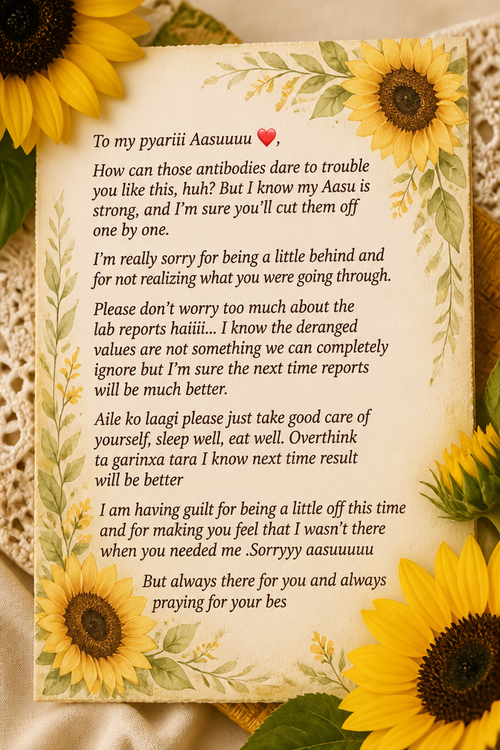 To my pyariii Aasuuuu ❤️,
How can those antibodies dare to trouble
you like this, huh? But I know my Aasu is
strong, and I'm sure you'll cut them off
one by one.
I'm really sorry for being a little behind and
for not realizing what you were going through.
Please don't worry too much about the
lab reports haiiii... I know the deranged
values are not something we can completely
ignore but I'm sure the next time reports
will be much better.
Aile ko laagi please just take good care of
yourself, sleep well, eat well. Overthink
ta garinxa tara I know next time result
will be better
I am having guilt for being a little off this time
and for making you feel that I wasn't there
when you needed me .Sorryyy aasuuuuu
But always there for you and always
praying for your bes